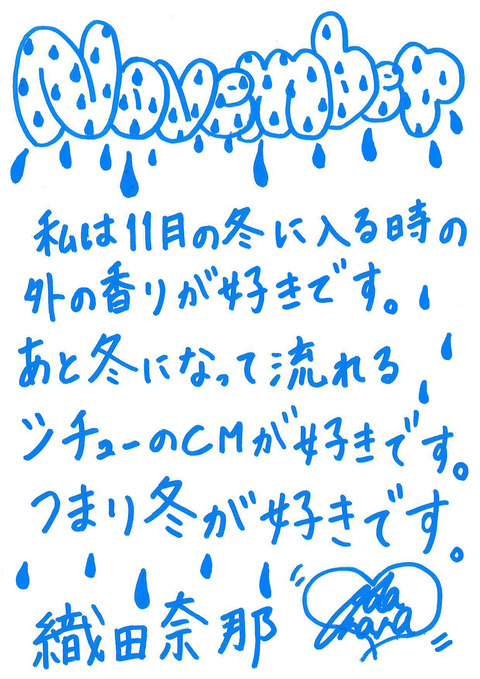 November
私は11月の冬に入る時の
外の香りが好きです。
あと冬になって流れる
シチューのCMが好きです。
つまり冬が好きです。
織田奈那
Oda
nana